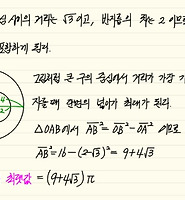 심 사이의 거리는 √3 이고, 반지름의 차는 2 이므로
포함하게 된다.
그림처럼 큰 구의 중심에서 거리가 가장 가
지를 때 단면의 넓이가 최대가 된다.
4
2
△OAB에서 AB² = OB² - OA² 이므로
AB² = 16 - (2-√3)² = 9 + 4√3
최댓값 = (9+4√3)π